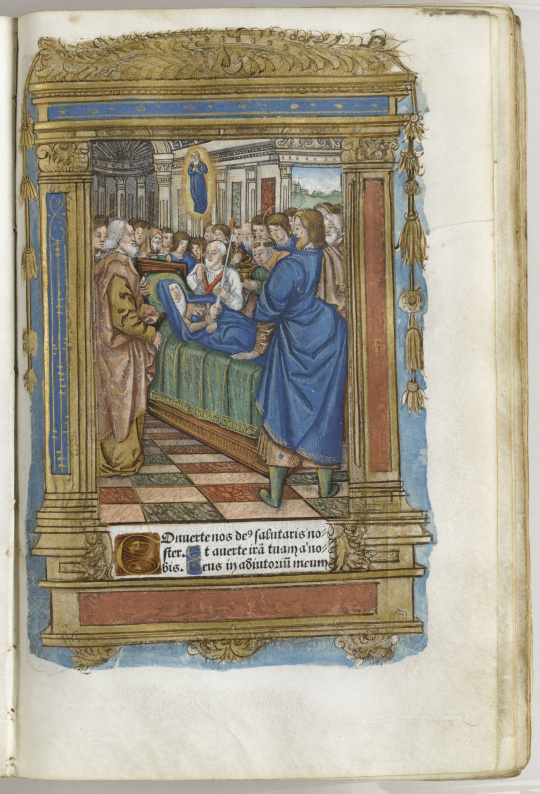 COnuerte nos deꝰ salutaris no/
ster. Et auerte irã tuam a no/
bis. Deus in adiutoriũ meum